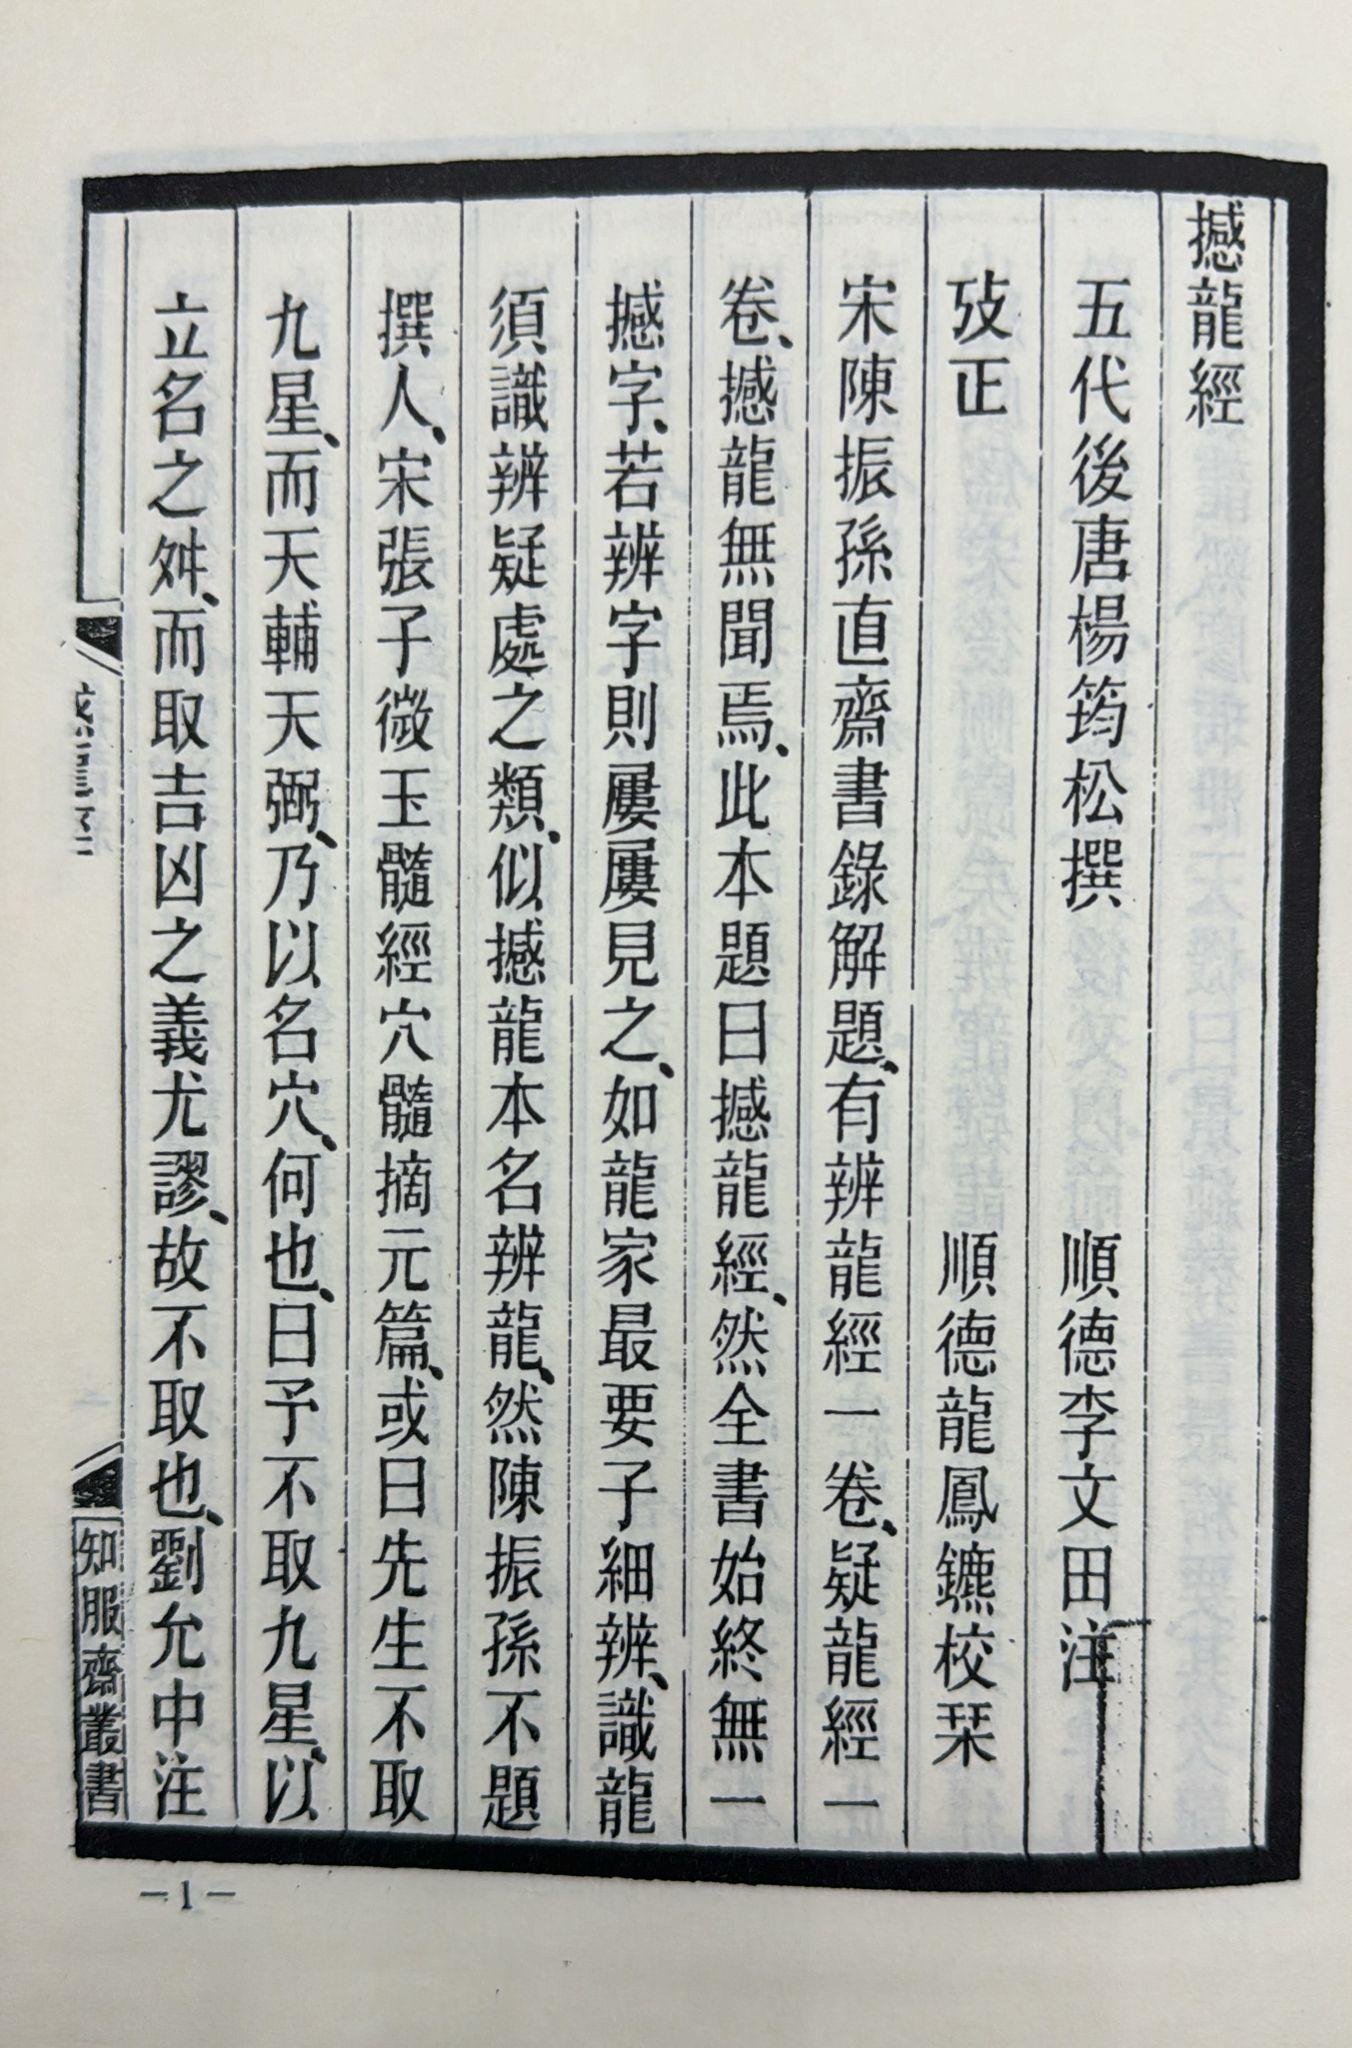 撼龍經
五代後唐楊筠松撰　順德李文田注
攷正　順德龍鳳鑣校栞
宋陳振孫直齋書錄解題、有辨龍經一卷、疑龍經一
卷、撼龍無聞焉、此本題曰撼龍經、然全書始終無一
撼字、若辨字則屢屢見之、如龍家最要子細辨、識龍
須識辨疑處之類、似撼龍本名辨龍、然陳振孫不題
撰人、宋張子微玉髓經穴髓摘元篇、或曰先生不取
九星、而天輔天弼、乃以名穴、何也、曰予不取九星、以
立名之舛、而取吉凶之義尤謬、故不取也、劉允中注
知服齋叢書
－1－